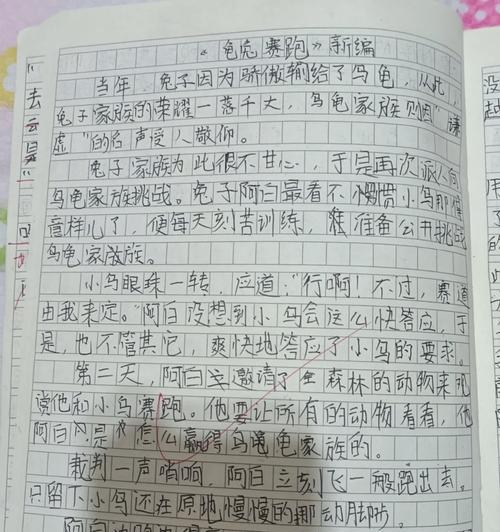 《龟兔赛跑》新编
当年，兔子因为骄傲输给了乌龟，从此，
兔子家族的荣耀一落千大，乌龟家族则因"谦
虚"的名声受人敬仰。
兔子家族为此很不甘心，于是再次派人向
乌龟家族挑战。兔子阿白最看不惯小乌那得
意样儿了，便每天刻苦训练，准备公开挑战
乌龟家族。
小乌眼珠一转，应道："行啊！不过，赛道
由我来定。"阿白没想到小乌会这么快答应，于
是，也不管其它，爽快地答应了小乌的要求。
第二天，阿白邀请了全森林的动物来观
赏他和小乌赛跑。他要让所有的动物看看，他
阿白是怎么赢得乌龟家族的。
裁判一声哨响，阿白立刻飞一般跑出去。
只留下小乌还在原地慢慢的挪动脚步。
"去
是"
没
越